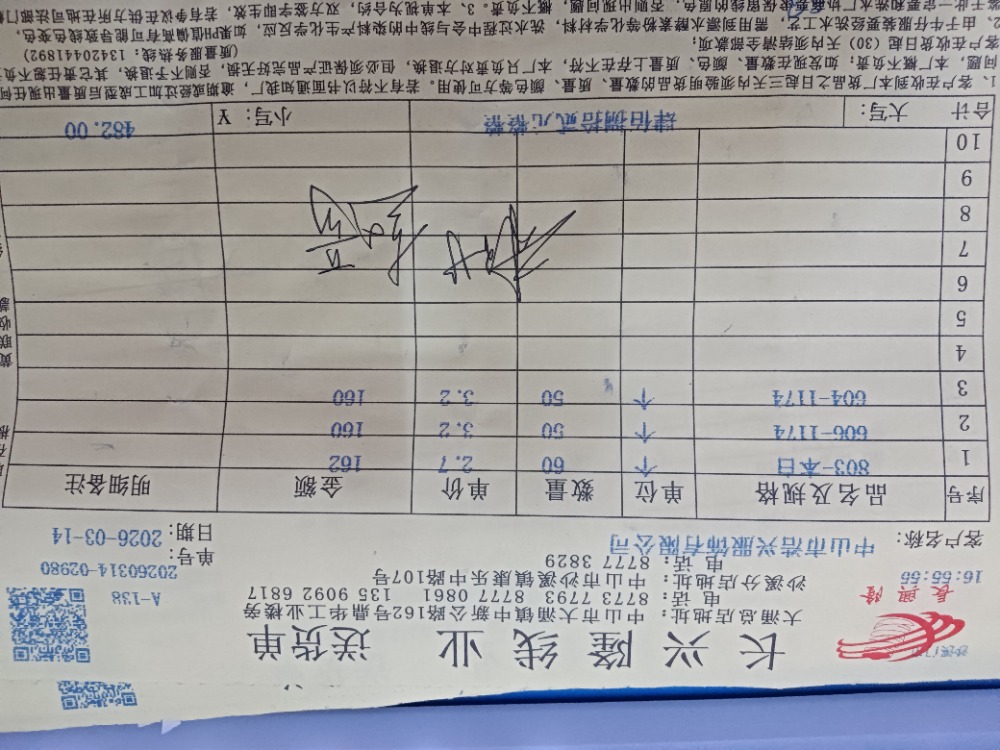 沙溪门
長興隆
16:55:55
长兴隆线业 送货单
大涌总店地址：中山市大涌镇中新公路162号鼎华工业楼旁
电话：8773 7793 8777 0861 135 9092 6817
沙溪分店地址：中山市沙溪镇康乐中路107号
电话：8777 3829
A-138
单号：20260314-02980
客户名称：中山市浩兴服饰有限公司
日期：2026-03-14
序号 品名及规格 单位 数量 单价 金额 明细备注
1 803-本白 个 60 2.7 162
2 606-1174 个 50 3.2 160
3 604-1174 个 50 3.2 160
4
5
6
7
8
9
10
合计 大写：肆佰捌拾贰元整 小写：¥ 482.00
1、客户在收到本厂货品之日起三天内须验明货品的数量、质量、颜色等方可使用。若有不符以书面通知我厂，逾期或经过加工成型后质量出现任何
问题，本厂概不负责；如发现在数量、颜色、质量上存在不符，本厂只负责对方退换，但必须保证产品完好无损，否则不予退换，其它责任概不负
客户在收货日起（30）天内须结清全部款项；
（质量服务热线：13420441892）
2、由于牛仔服装要经洗水工艺，需用到漂水酵素粉等化学材料，洗水过程中会与线中的染料产生化学反应，如果PH值偏高有可能导致线色变色，
客于此一定要和洗水厂协商要求保留线的原色，否则出现问题，概不负责。3、本单视为合约，双方签字即生效，若有争议在供方所在地司法部门